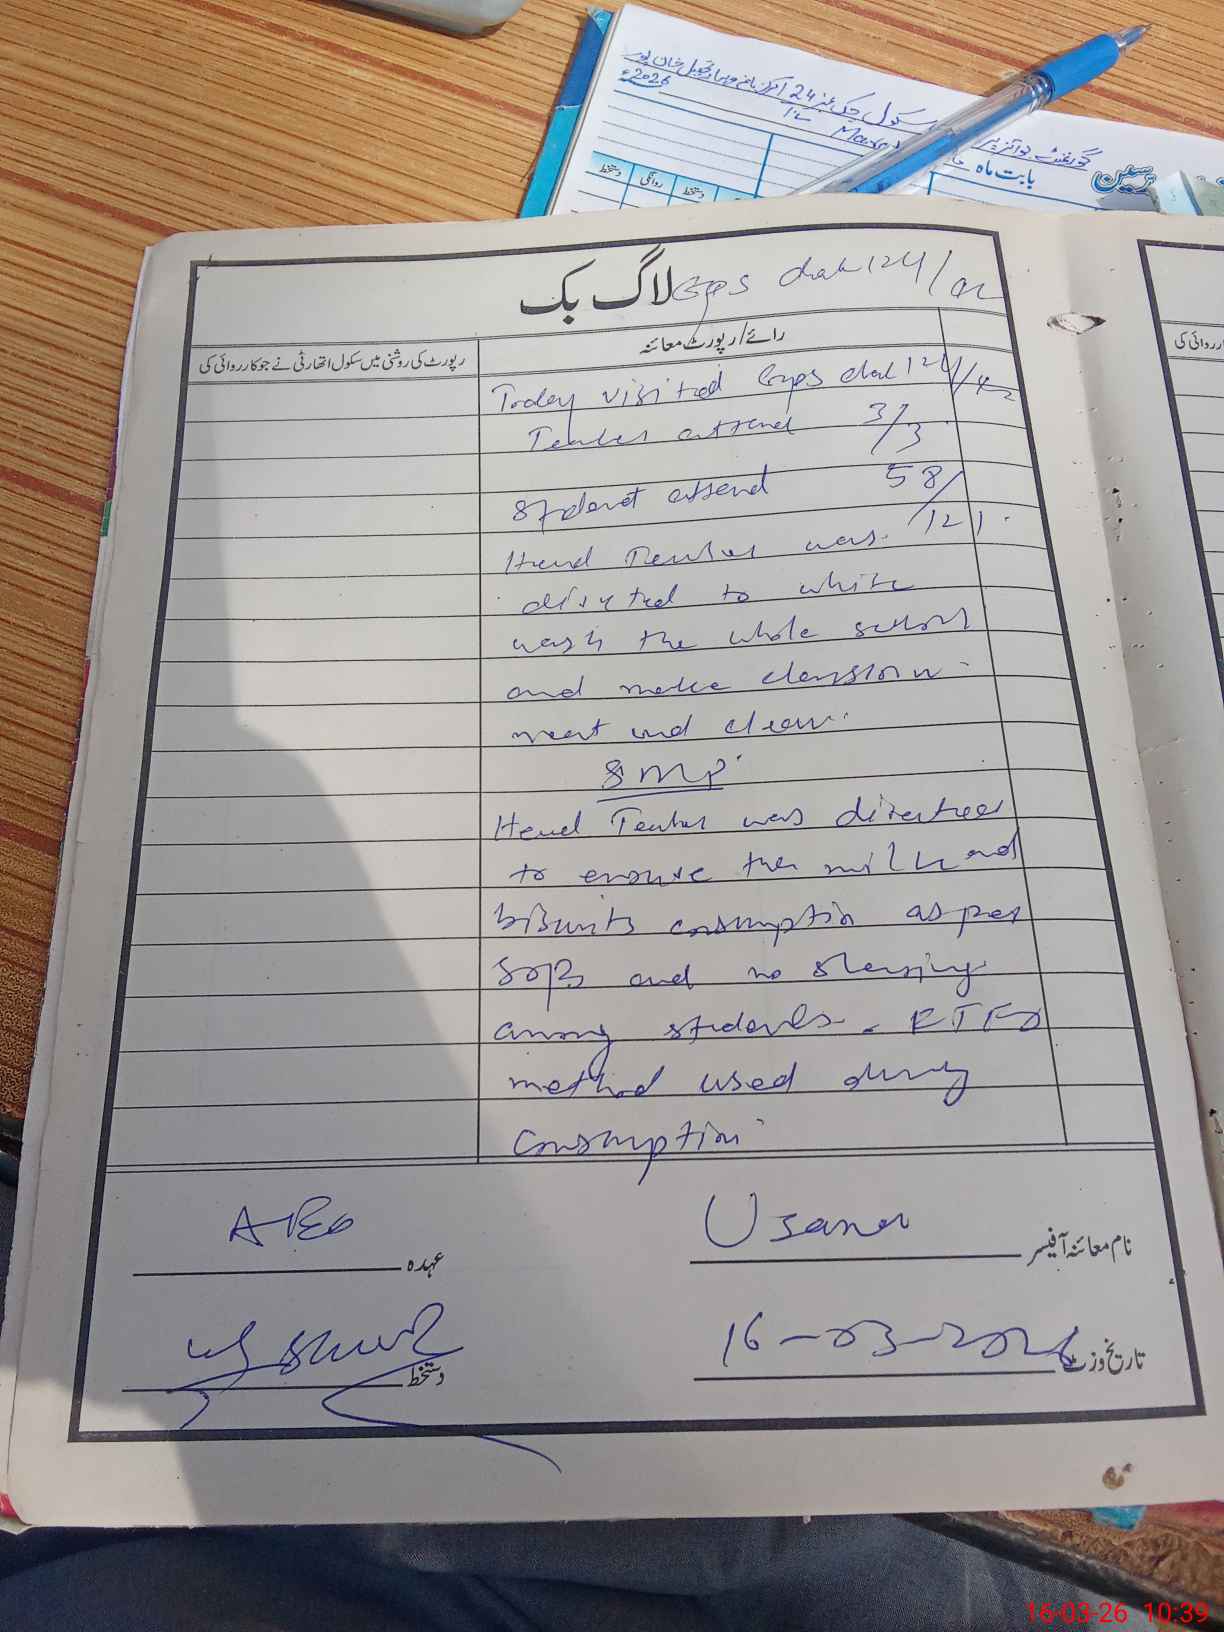 گورنمنٹ بوائز سکول چک نمبر 24
2026ء
بابت ماہ March
دستخط روانگی دستخط
لاگ بک Gps chak 124/
رپورٹ کی روشنی میں سکول اتھارٹی نے جو کارروائی کی
رائے/رپورٹ معائنہ
Today visited Gps chak 124/
Teacher attend 3/3
Student attend 58/121.
Head Teacher was
directed to white
wash the whole school
and make classroom
neat and clean.
SMP
Head Teacher was directed
to ensure the milk and
biscuits consumption as per
SOPs and no sharing
among students.
method used during
consumption
AEO
عہدہ
نام معائنہ آفیسر
دستخط
16-03-2026
تاریخ وزٹ
16-03-26 10:39